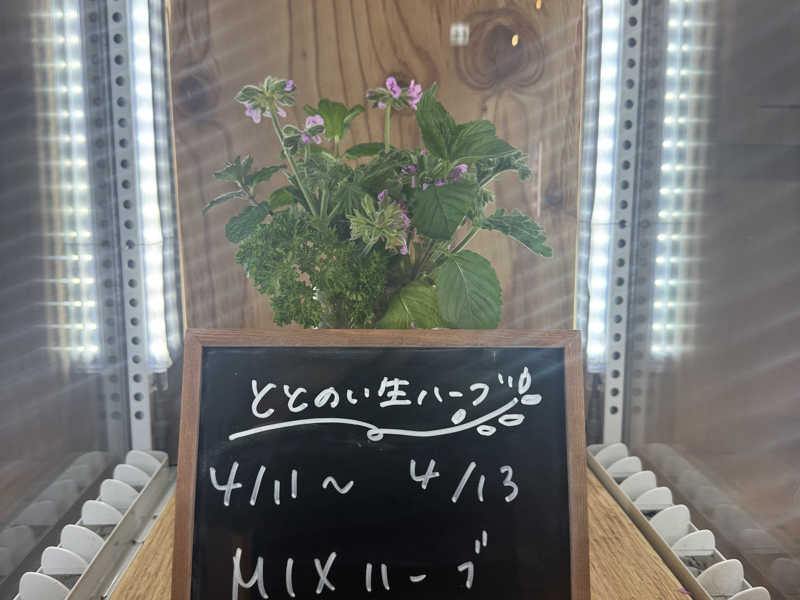 ととのい生ハーブ
4/11～4/13
MIXハーブ